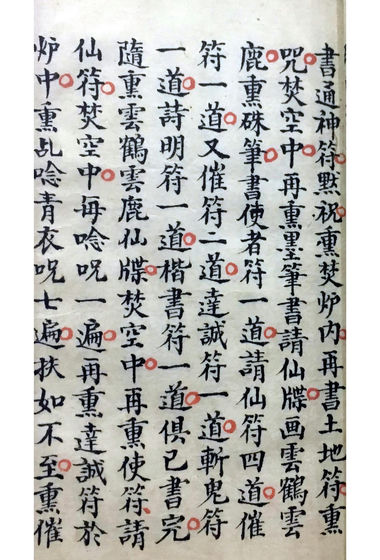 書通神符黙祝熏焚炉内再書土地符熏
咒焚空中再熏墨筆書請仙牒画雲鶴雲
鹿熏硃筆書使者符一道請仙符四道催
符一道又催符一道達誠符一道斬鬼符
一道詩明符一道楷書符一道俱已書完
隨熏雲鶴雲鹿仙牒焚空中再熏使符請
仙符焚空中每唸咒一遍再熏達誠符於
炉中熏乩唸青衣咒七遍扶如不至熏催